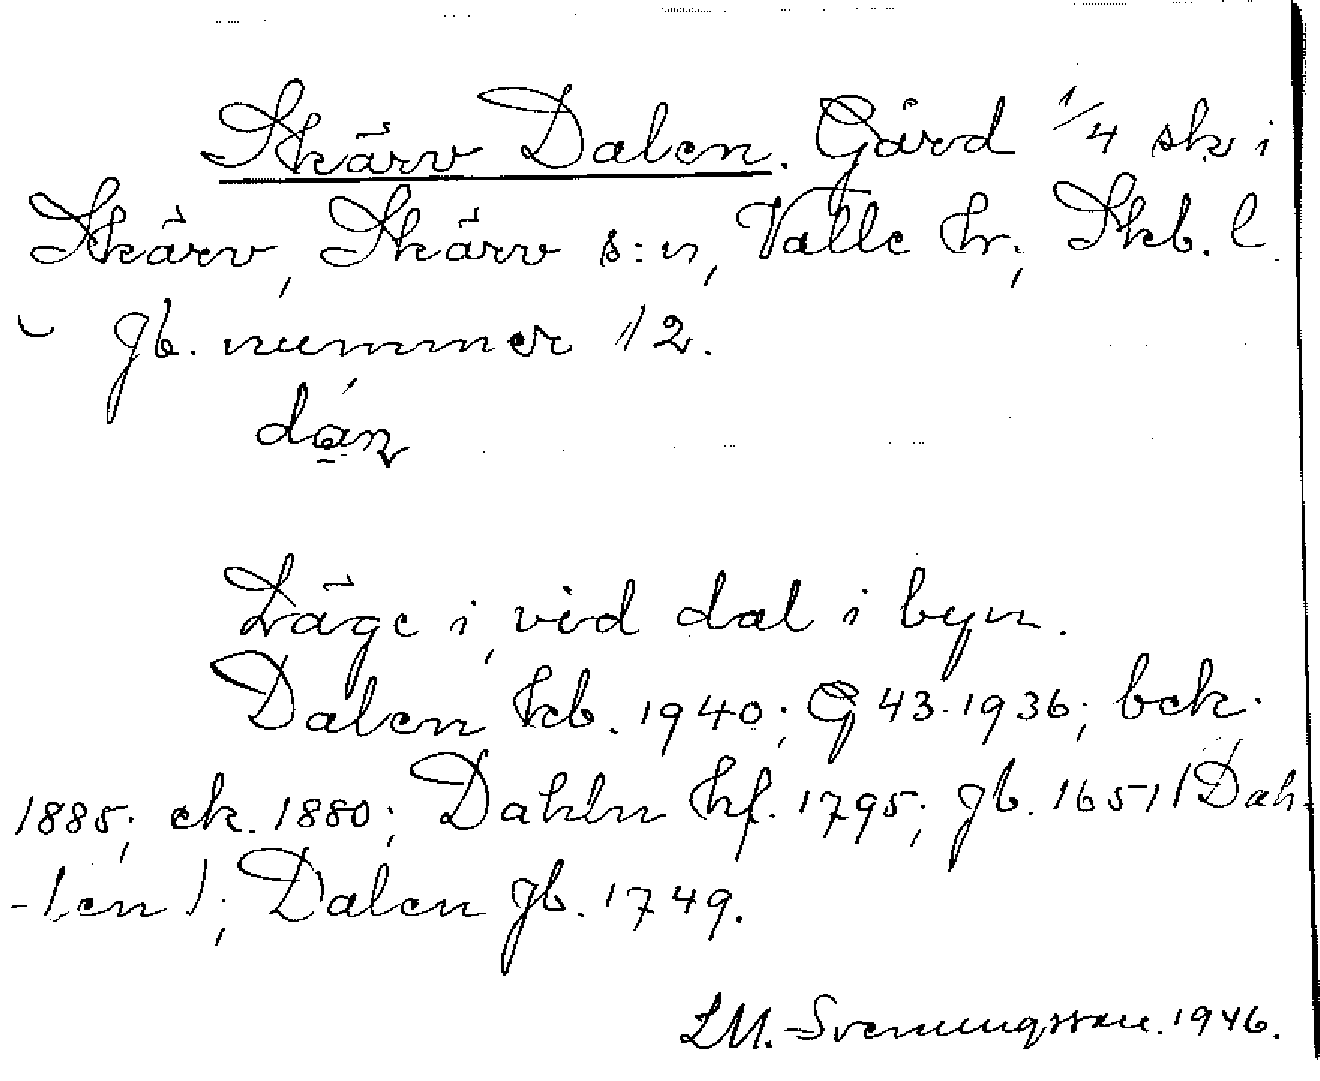 Skärv Dalen. Gård 1/4 sk i
Skärv, Skärv s:n, Valle hr; Skb. l.
gb. nummer 12.
Läge i, vid dal i byn.
Dalen kb. 1940; G 43 1936; bek.
1885; ek. 1880; Dahln hf. 1795; gb. 1651 (Dah-
-len); Dalen gb. 1749.
LM. Svenungsson. 1946.